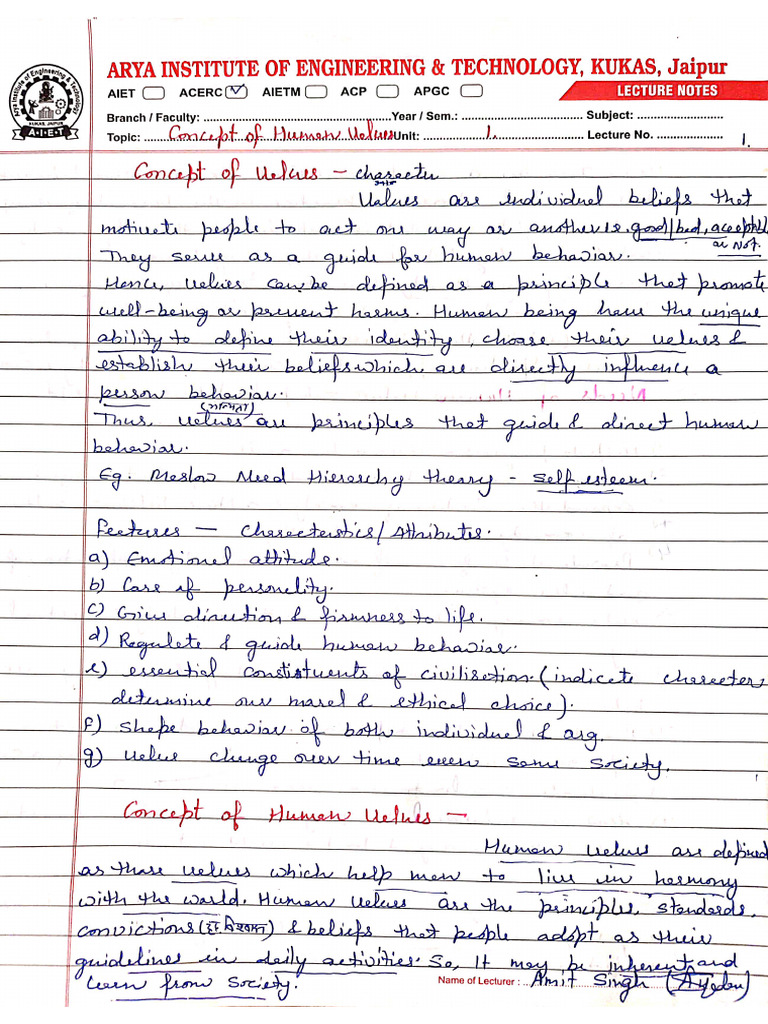 ARYA INSTITUTE OF ENGINEERING & TECHNOLOGY, KUKAS, Jaipur
AIET ACERC ✓ AIETM ACP APGC LECTURE NOTES
Branch / Faculty: Year / Sem.: Subject:
Topic: Concept of Human Values Unit: 1. Lecture No. 1.
Arya Institute of Engineering & Technology
KUKAS, JAIPUR
A-I-E-T
Concept of Values – character
Values are individual beliefs that
motivate people to act one way or another i.e. good/bad, accepted
or Not.
They serve as a guide for human behavior.
Hence, values can be defined as a principle that promote
well-being or prevent harms. Human being have the unique
ability to define their identity, choose their values &
establish their beliefs which are directly influence a
person behavior.
(मान्यता)
Thus values are principles that guide & direct human
behavior.
Eg. Maslow Need Hierarchy theory – self esteem.
Features — Characterstics/Attributes.
a) Emotional attitude.
b) Core of personality.
c) Gives direction & firmness to life.
d) Regulate & guide human behavior.
e) essential constistuents of civilisation. (indicate character,
determine our moral & ethical choice).
f) Shape behavior of both individual & org.
g) value change over time even same society.
Concept of Human Values —
Human values are defined
as those values which help man to live in harmony
with the world. Human Values are the principles, standards,
convictions (दृढ़ विश्वास) & beliefs that people adopt as their
guidelines in daily activities. So, It may be inherent and
learn from society.
Name of Lecturer : Amit Singh